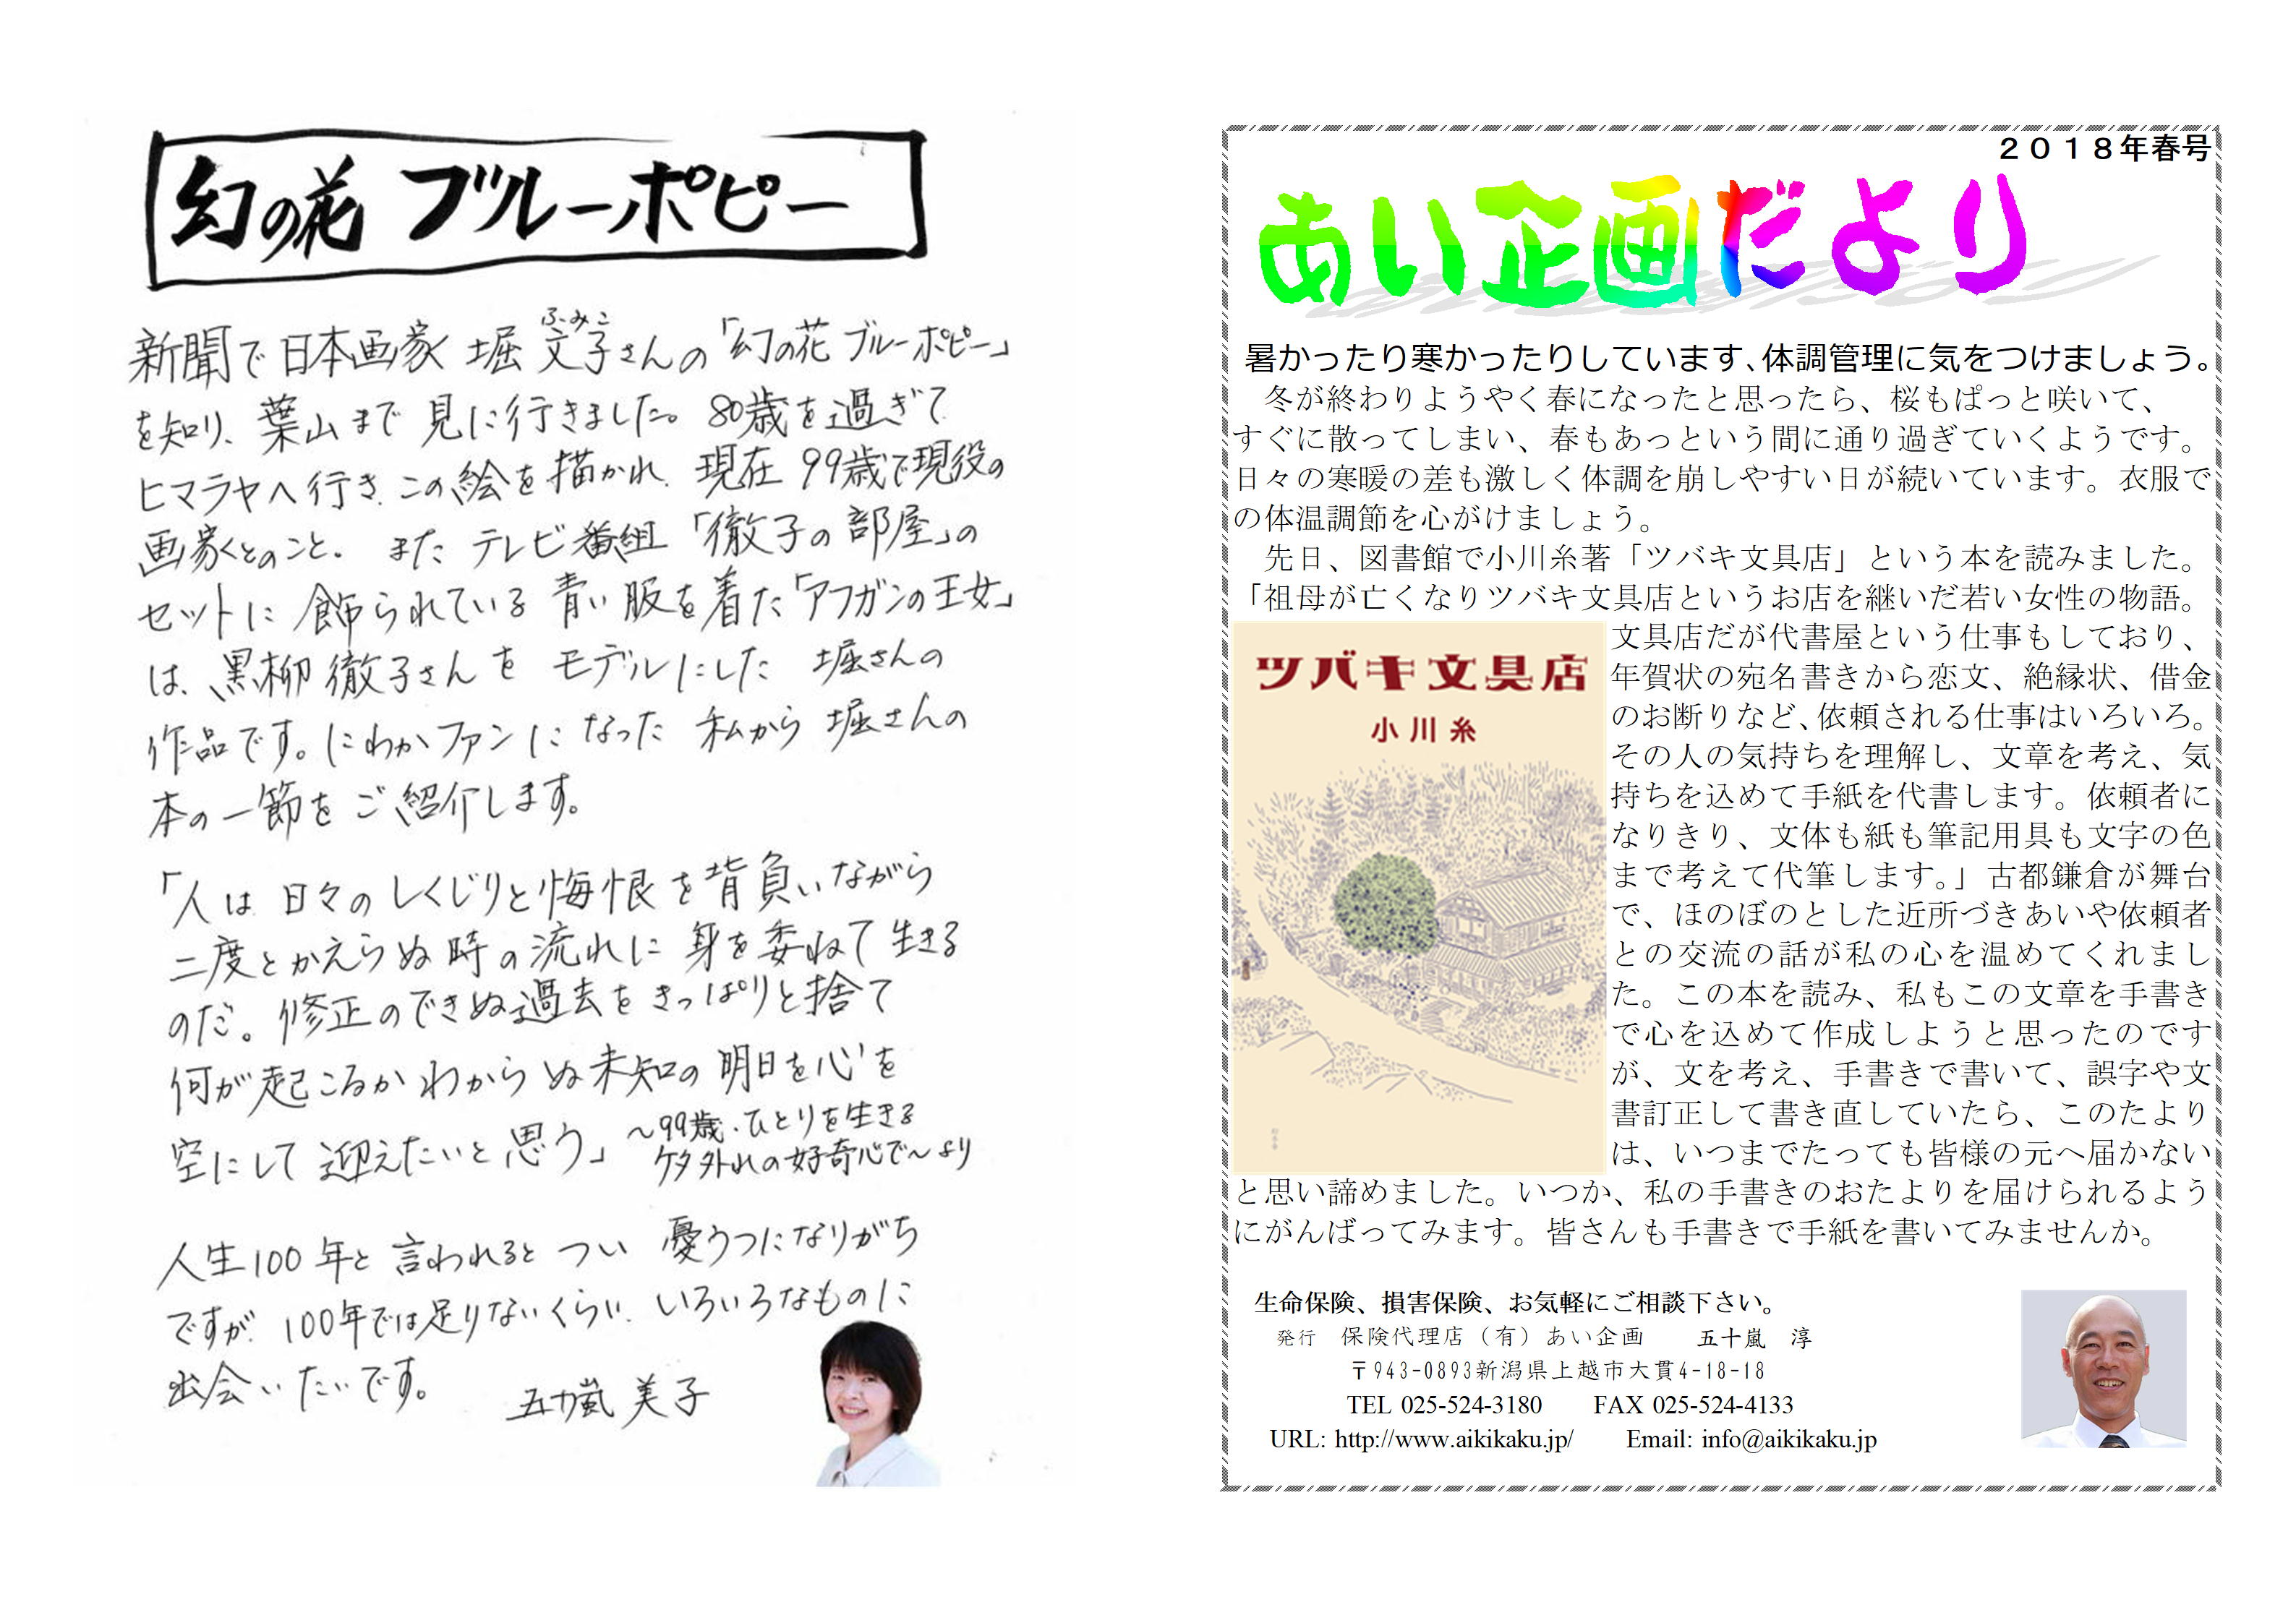 幻の花 ブルーポピー
新聞で日本画家 堀 文子さんの「幻の花 ブルーポピー」
ふみこ
を知り、葉山まで見に行きました。80歳を過ぎて
ヒマラヤへ行き、この絵を描かれ、現在99歳で現役の
画家とのこと。また テレビ番組「徹子の部屋」の
セットに飾られている青い服を着た「アフガンの王女」
は、黒柳徹子さんを モデルにした 堀さんの
作品です。にわかファンになった 私から 堀さんの
本の一節をご紹介します。
「人は 日々のしくじりと悔恨を背負いながら
二度とかえらぬ時の流れに 身を委ねて生きる
のだ。修正のできぬ過去をきっぱりと捨て
何が起こるかわからぬ未知の明日を心を
空にして迎えたいと思う」
～99歳、ひとりを生きる
ケタ外れの好奇心で～より
人生100年と言われると つい 憂うつになりがち
ですが、100年では足りないくらい、いろいろなものに
出会いたいです。
五十嵐 美子
２０１８年春号
あい企画だより
暑かったり寒かったりしています、体調管理に気をつけましょう。
冬が終わりようやく春になったと思ったら、桜もぱっと咲いて、
すぐに散ってしまい、春もあっという間に通り過ぎていくようです。
日々の寒暖の差も激しく体調を崩しやすい日が続いています。衣服で
の体温調節を心がけましょう。
先日、図書館で小川糸著「ツバキ文具店」という本を読みました。
「祖母が亡くなりツバキ文具店というお店を継いだ若い女性の物語。
文具店だが代書屋という仕事もしており、
年賀状の宛名書きから恋文、絶縁状、借金
のお断りなど、依頼される仕事はいろいろ。
その人の気持ちを理解し、文章を考え、気
持ちを込めて手紙を代書します。依頼者に
なりきり、文体も紙も筆記用具も文字の色
まで考えて代筆します。」古都鎌倉が舞台
で、ほのぼのとした近所づきあいや依頼者
との交流の話が私の心を温めてくれまし
た。この本を読み、私もこの文章を手書き
で心を込めて作成しようと思ったのです
が、文を考え、手書きで書いて、誤字や文
書訂正して書き直していたら、このたより
は、いつまでたっても皆様の元へ届かない
と思い諦めました。いつか、私の手書きのおたよりを届けられるよう
にがんばってみます。皆さんも手書きで手紙を書いてみませんか。
ツバキ文具店
小川糸
生命保険、損害保険、お気軽にご相談下さい。
発行 保険代理店（有）あい企画 五十嵐 淳
〒943-0893新潟県上越市大貫4-18-18
TEL 025-524-3180 FAX 025-524-4133
URL: http://www.aikikaku.jp/ Email: info@aikikaku.jp